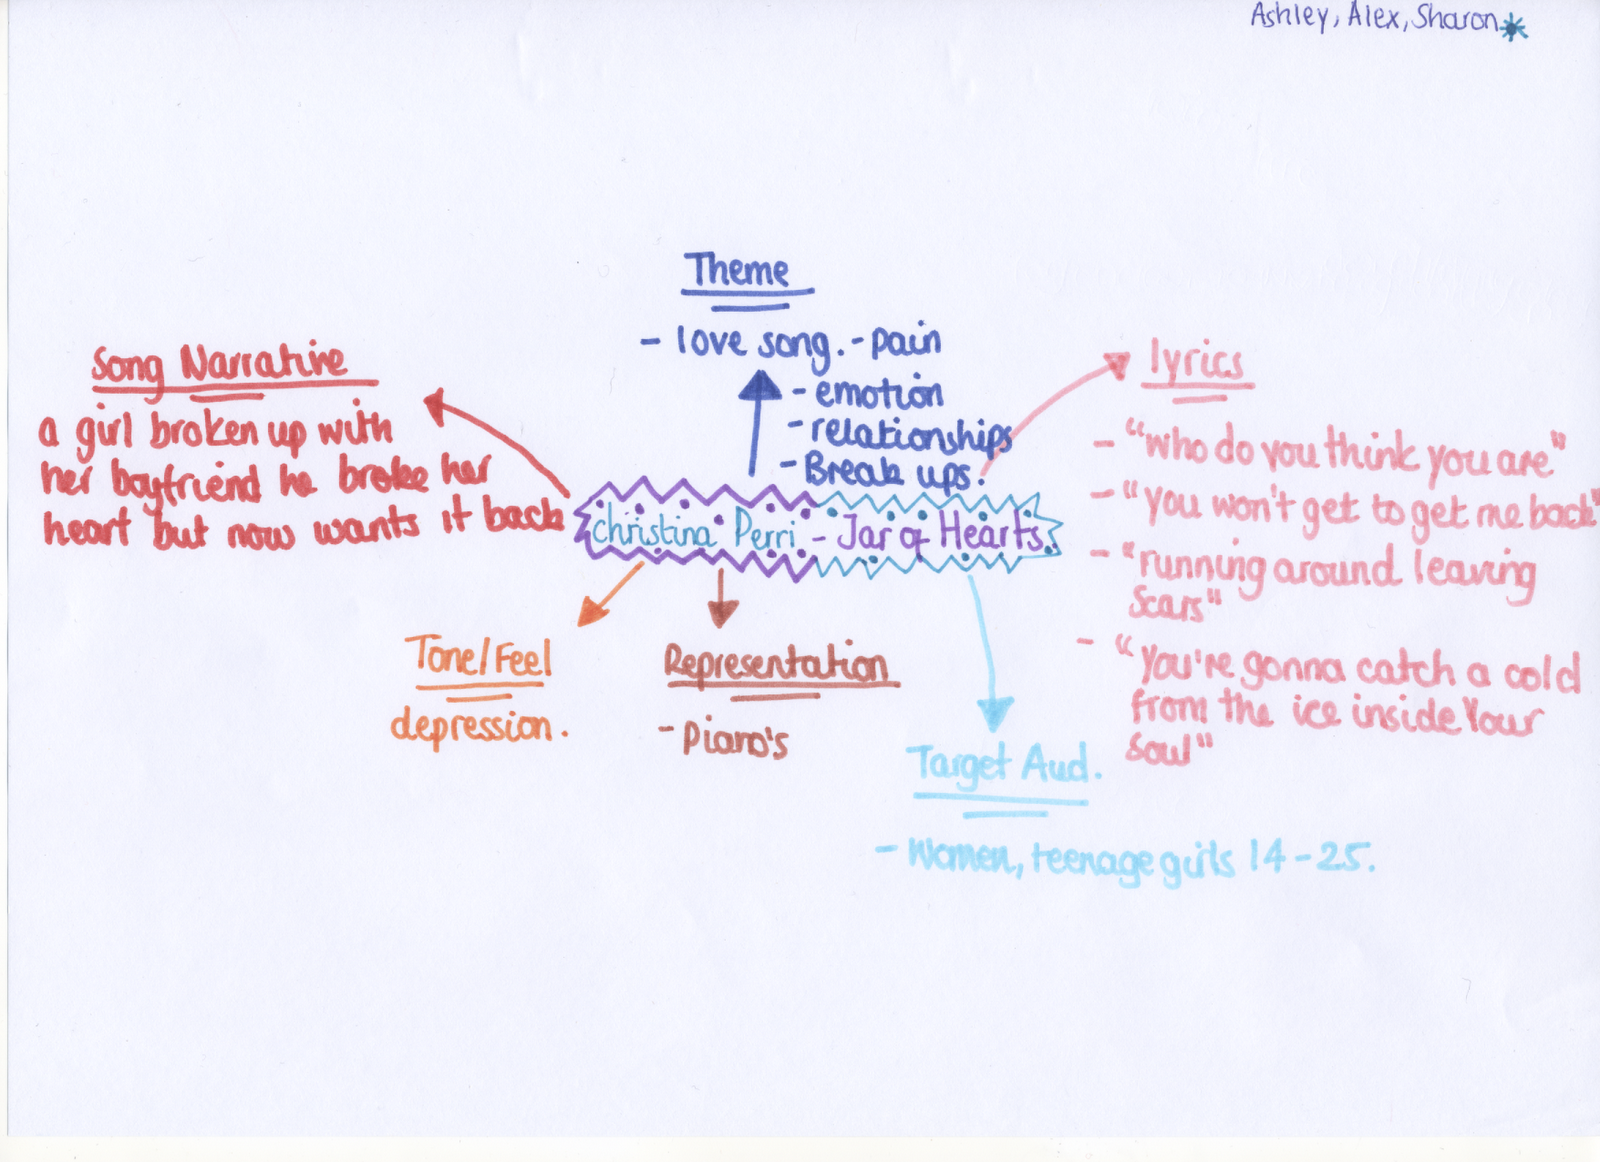 Ashley, Alex, Sharon
Theme
- love song. - pain
- emotion
- relationships
- Break ups.
Song Narrative
a girl broken up with
her boyfriend he broke her
heart but now wants it back
lyrics
- "who do you think you are"
- "you won't get to get me back"
- "running around leaving
scars"
- "you're gonna catch a cold
from the ice inside Your
soul"
christina Perri - Jar of Hearts.
Tone/Feel
depression.
Representation
- Piano's
Target Aud.
- Women, teenage girls 14-25.